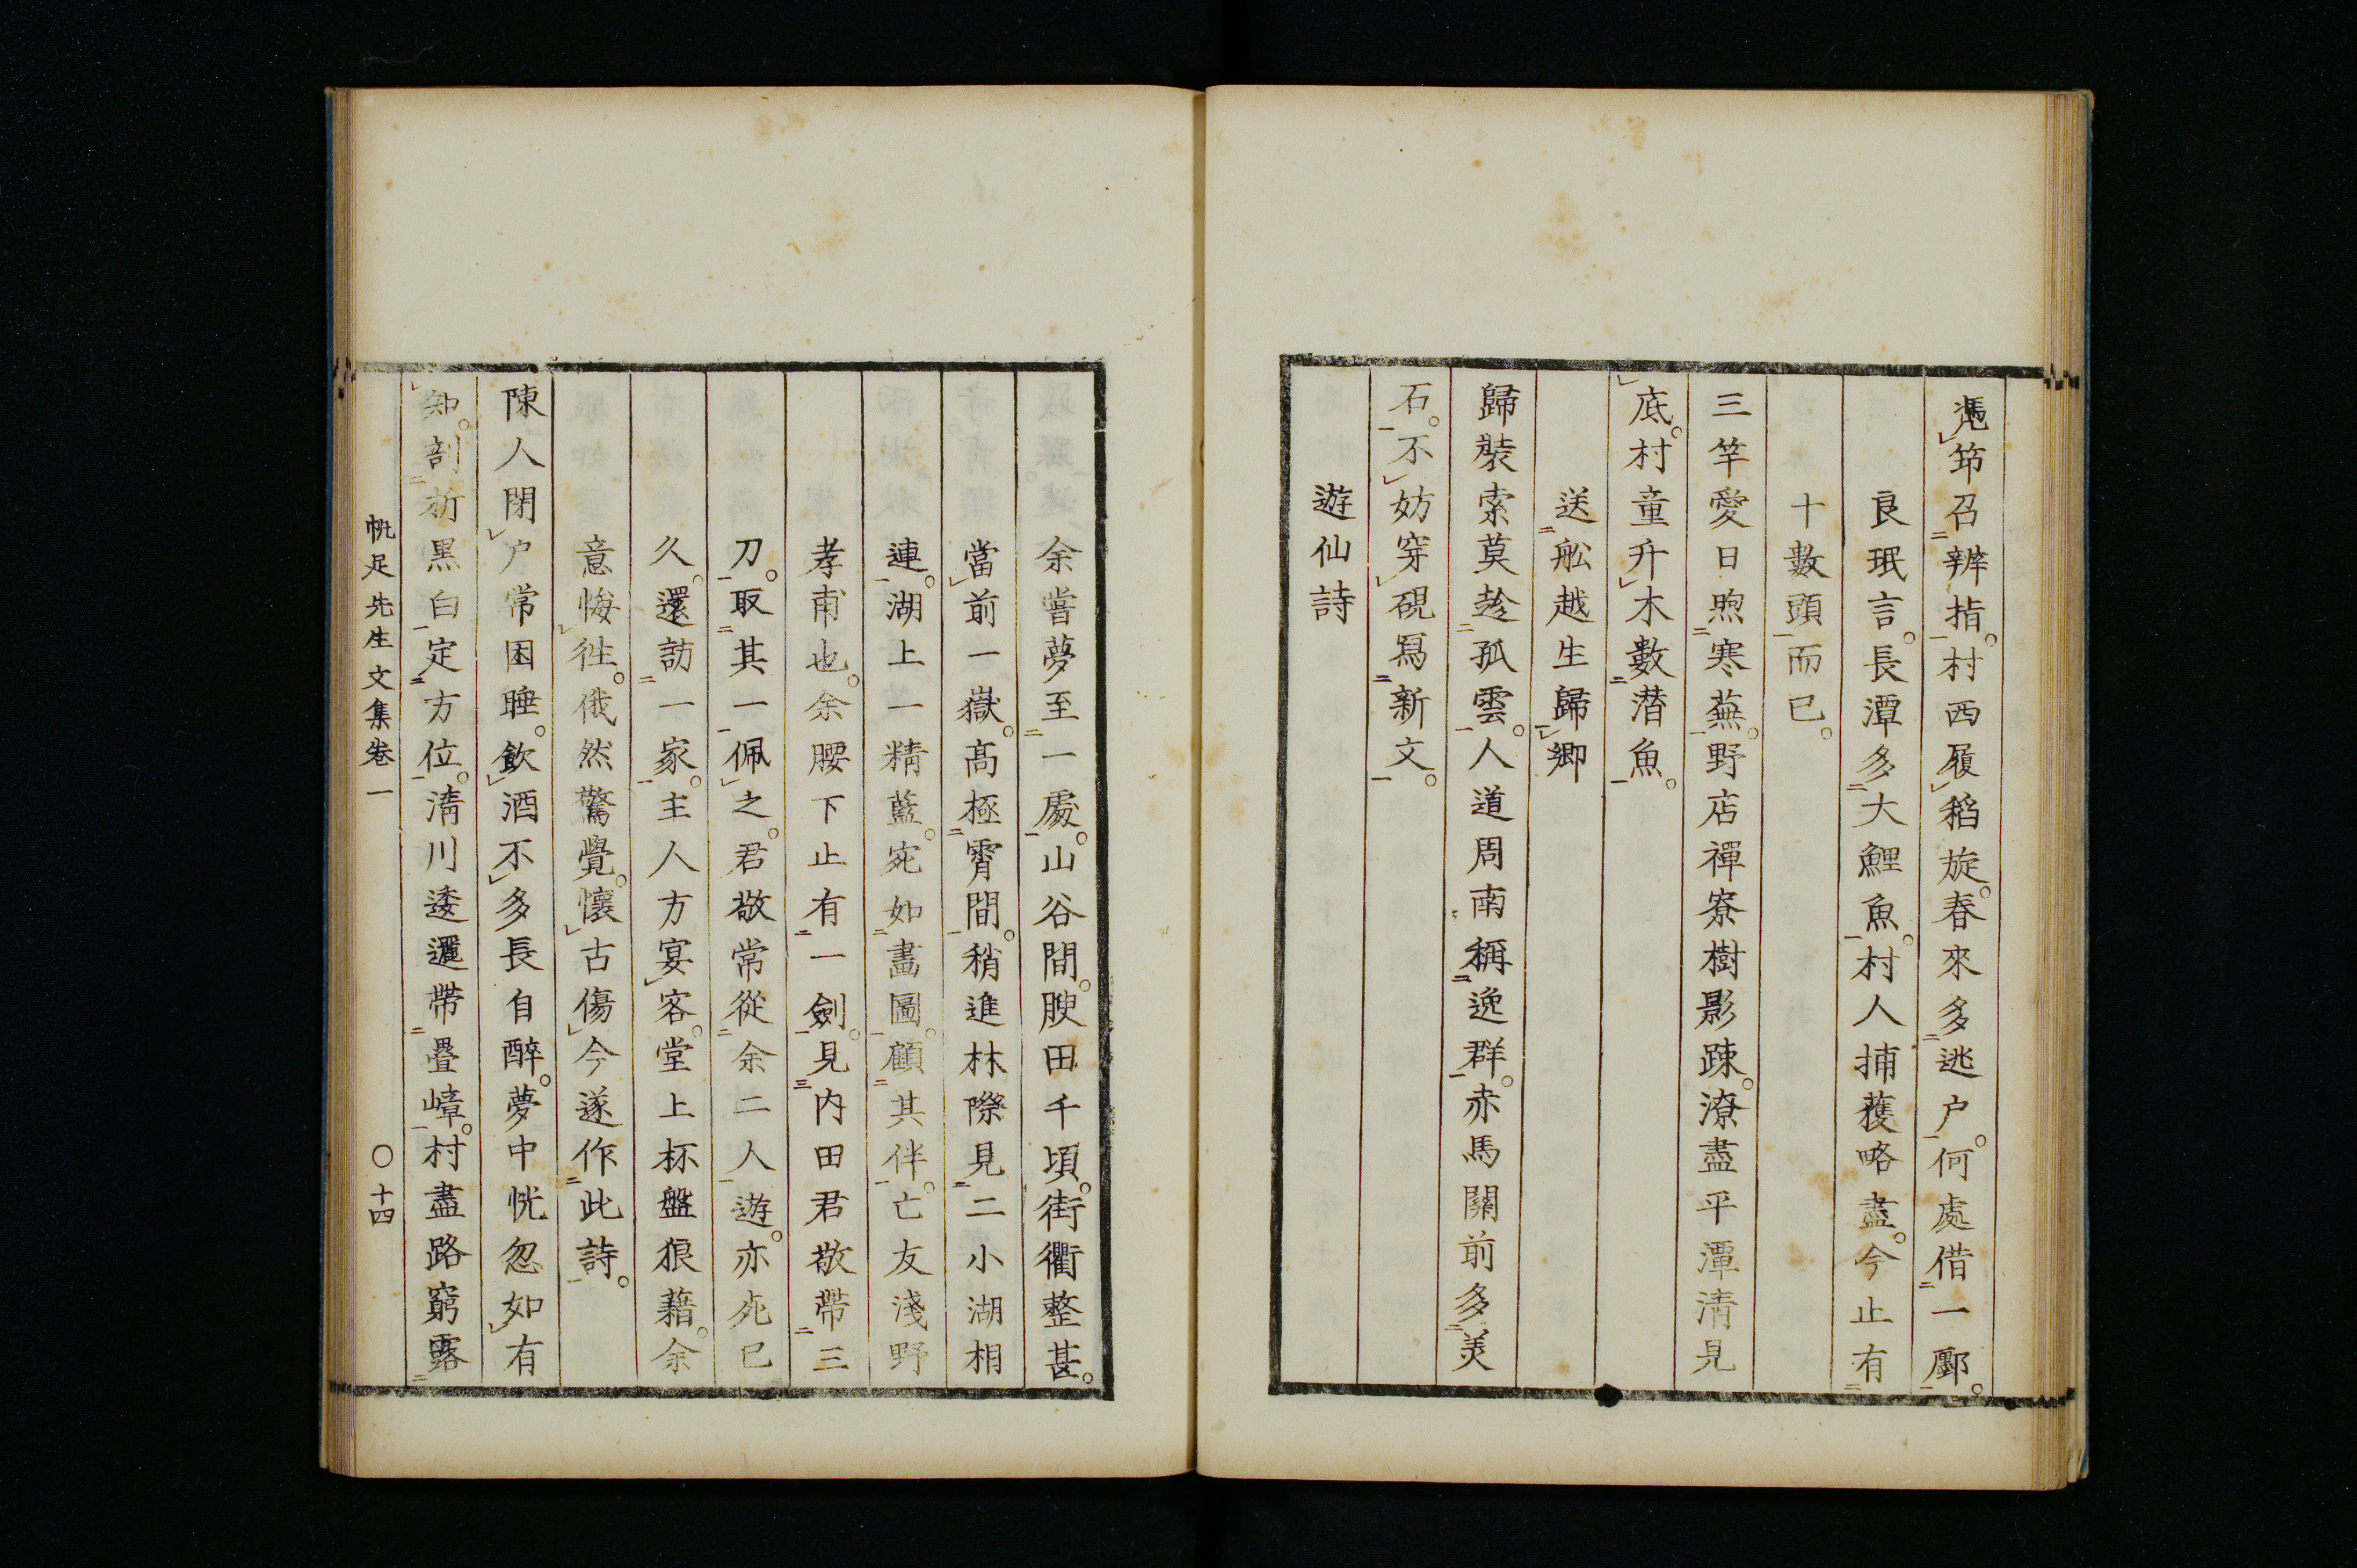 憑笻召辨指。村西履稻旋。春來多逃户。何處借一鄽。
良珉言。長潭多大鯉魚。村人捕獲略盡。今止有
十數頭而已。
三竿愛日煦寒蕪。野店禪寮樹影疎。潦盡平潭清見
底。村童升木數潛魚。
送舩越生歸鄉
歸裝索莫趁孤雲。人道周南稱逸群。赤馬關前多美
石。不妨穿硯寫新文。
遊仙詩
余嘗夢至一處。山谷間。腴田千頃。街衢整甚。
當前一嶽。高極霄間。稍進林際見二小湖相
連。湖上一精藍。宛如畫圖。顧其伴。亡友淺野
孝甫也。余腰下止有一劍。見内田君敬帶三
刀。取其一佩之。君敬常從余二人遊。亦死已
久。還訪一家。主人方宴客。堂上杯盤狼藉。余
意悔徃。俄然驚覺。懷古傷今遂作此詩。
陳人閉户常困睡。飲酒不多長自醉。夢中恍忽如有
知。剖析黑白定方位。淸川逶邐帶疊嶂。村盡路窮露
帆足先生文集卷一
〇十四